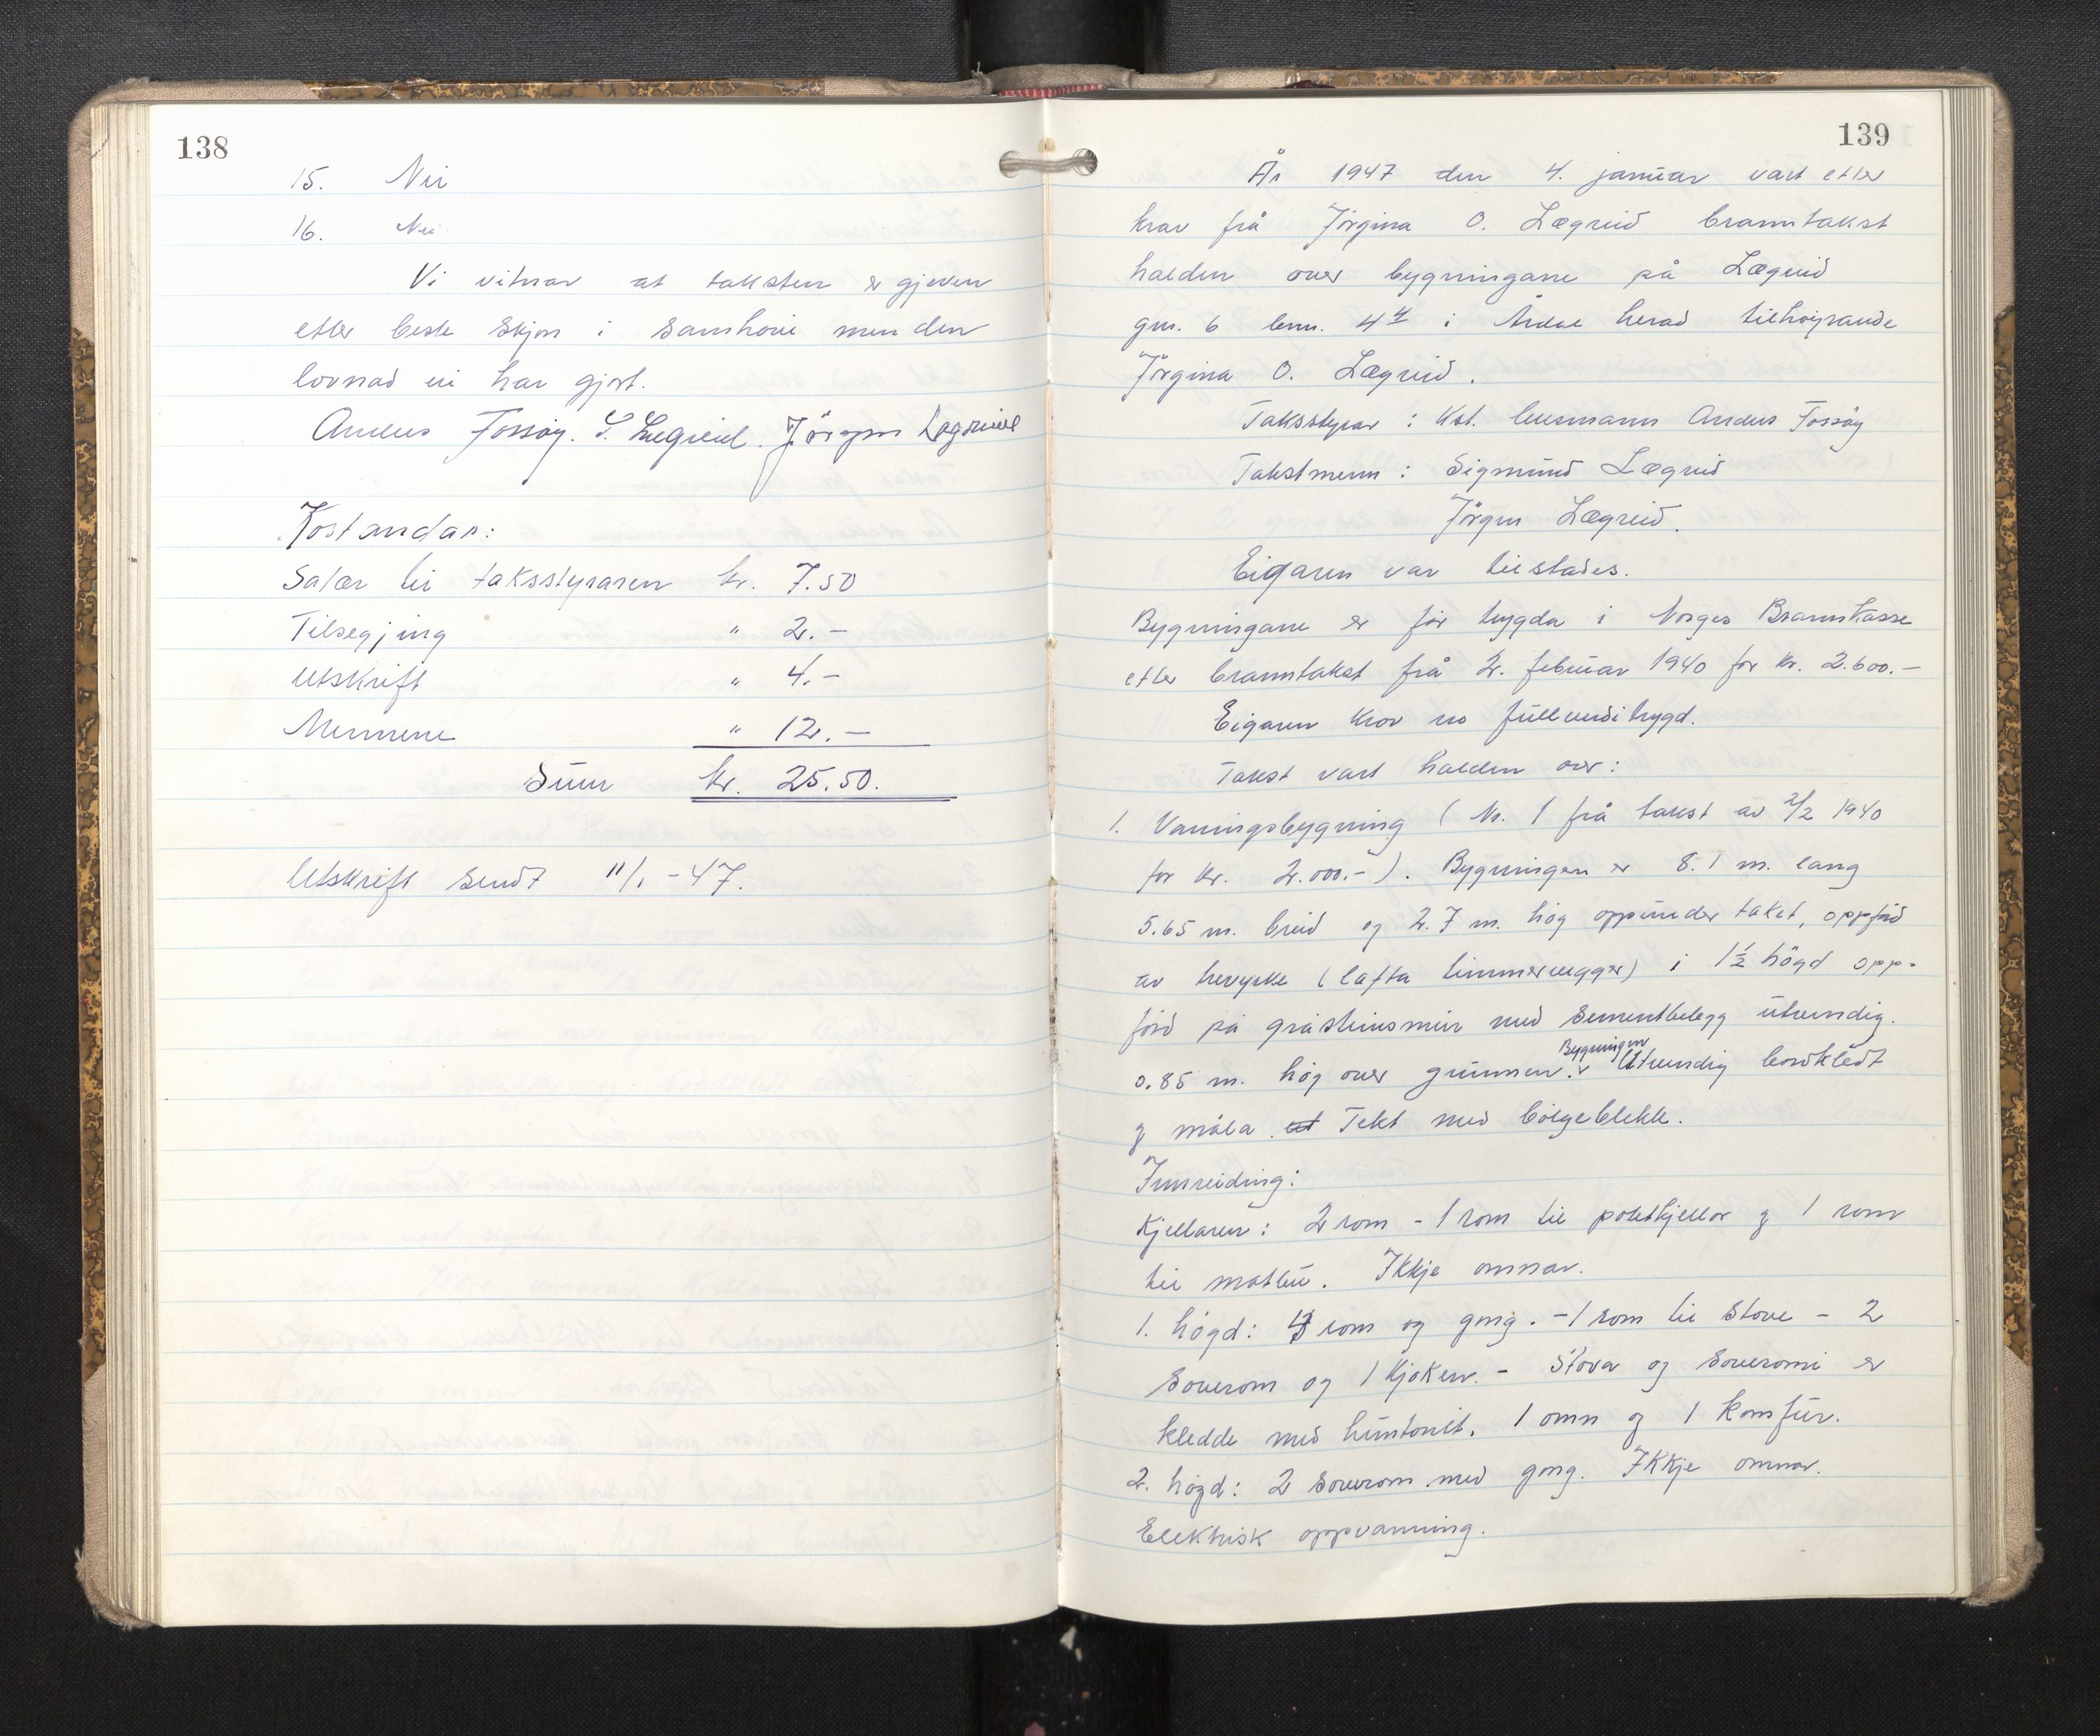 138
15. Nei
16. Nei
Vi vitnar at taksten er gjeven
etter beste skjøn i samhøve men den
lovnad vi har gjort.
Anders Fossøy. S. Lægreid. Jörgen Lægreid
Kostandar:
Salær til taksstyraren kr. 7.50
Tilsegjing " 2.-
Utskrift " 4.-
Mennene " 12.-
Sum kr. 25.50.
Utskrift sendt 11/1 -47.
139
År 1947 den 4. januar vart etter
krav frå Jörgina O. Lægreid branntakst
halden over bygningane på Lægreid
gnr. 6 bnr. 4 i Årdal herad tilhøyrande
Jörgina O. Lægreid.
Taksstyrar : Kst. lensmann Anders Fossøy
Takstmenn : Sigmund Lægreid
Jörgen Lægreid.
Eigaren var tilstades.
Bygningane er før trygda i Norges Brannkasse
etter branntakst frå 2. februar 1940 for kr. 2.600.-
Eigaren krov no fullverditrygd.
Takst vart halden over:
1. Våningsbygning ( Nr. 1 frå takst av 2/2 1940
for kr. 2.000.- ). Bygningen er 8.1 m. lang
5.65 m. breid og 2.7 m. høg oppunder taket, oppførd
av trevyrke (lafta timmervegger) i 1½ högd opp-
førd på gråsteinsmur med sementbelegg utvendig.
0.85 m. høg over grunnen. Bygningen Utvendig bordkledt
og måla. Tekt med bölgeblekk.
Innreiding:
Kjellaren: 2 rom - 1 rom til potetkjellar og 1 rom
til matbu. Ikkje omnar.
1. högd: 4 rom og gong. - 1 rom til stove - 2
soverom og 1 kjøken. - Stova og soveromi er
kledde med huntonit. 1 omn og 1 komfur.
2. högd: 2 soverom med gong. Ikkje omnar.
Elektrisk oppvarming.